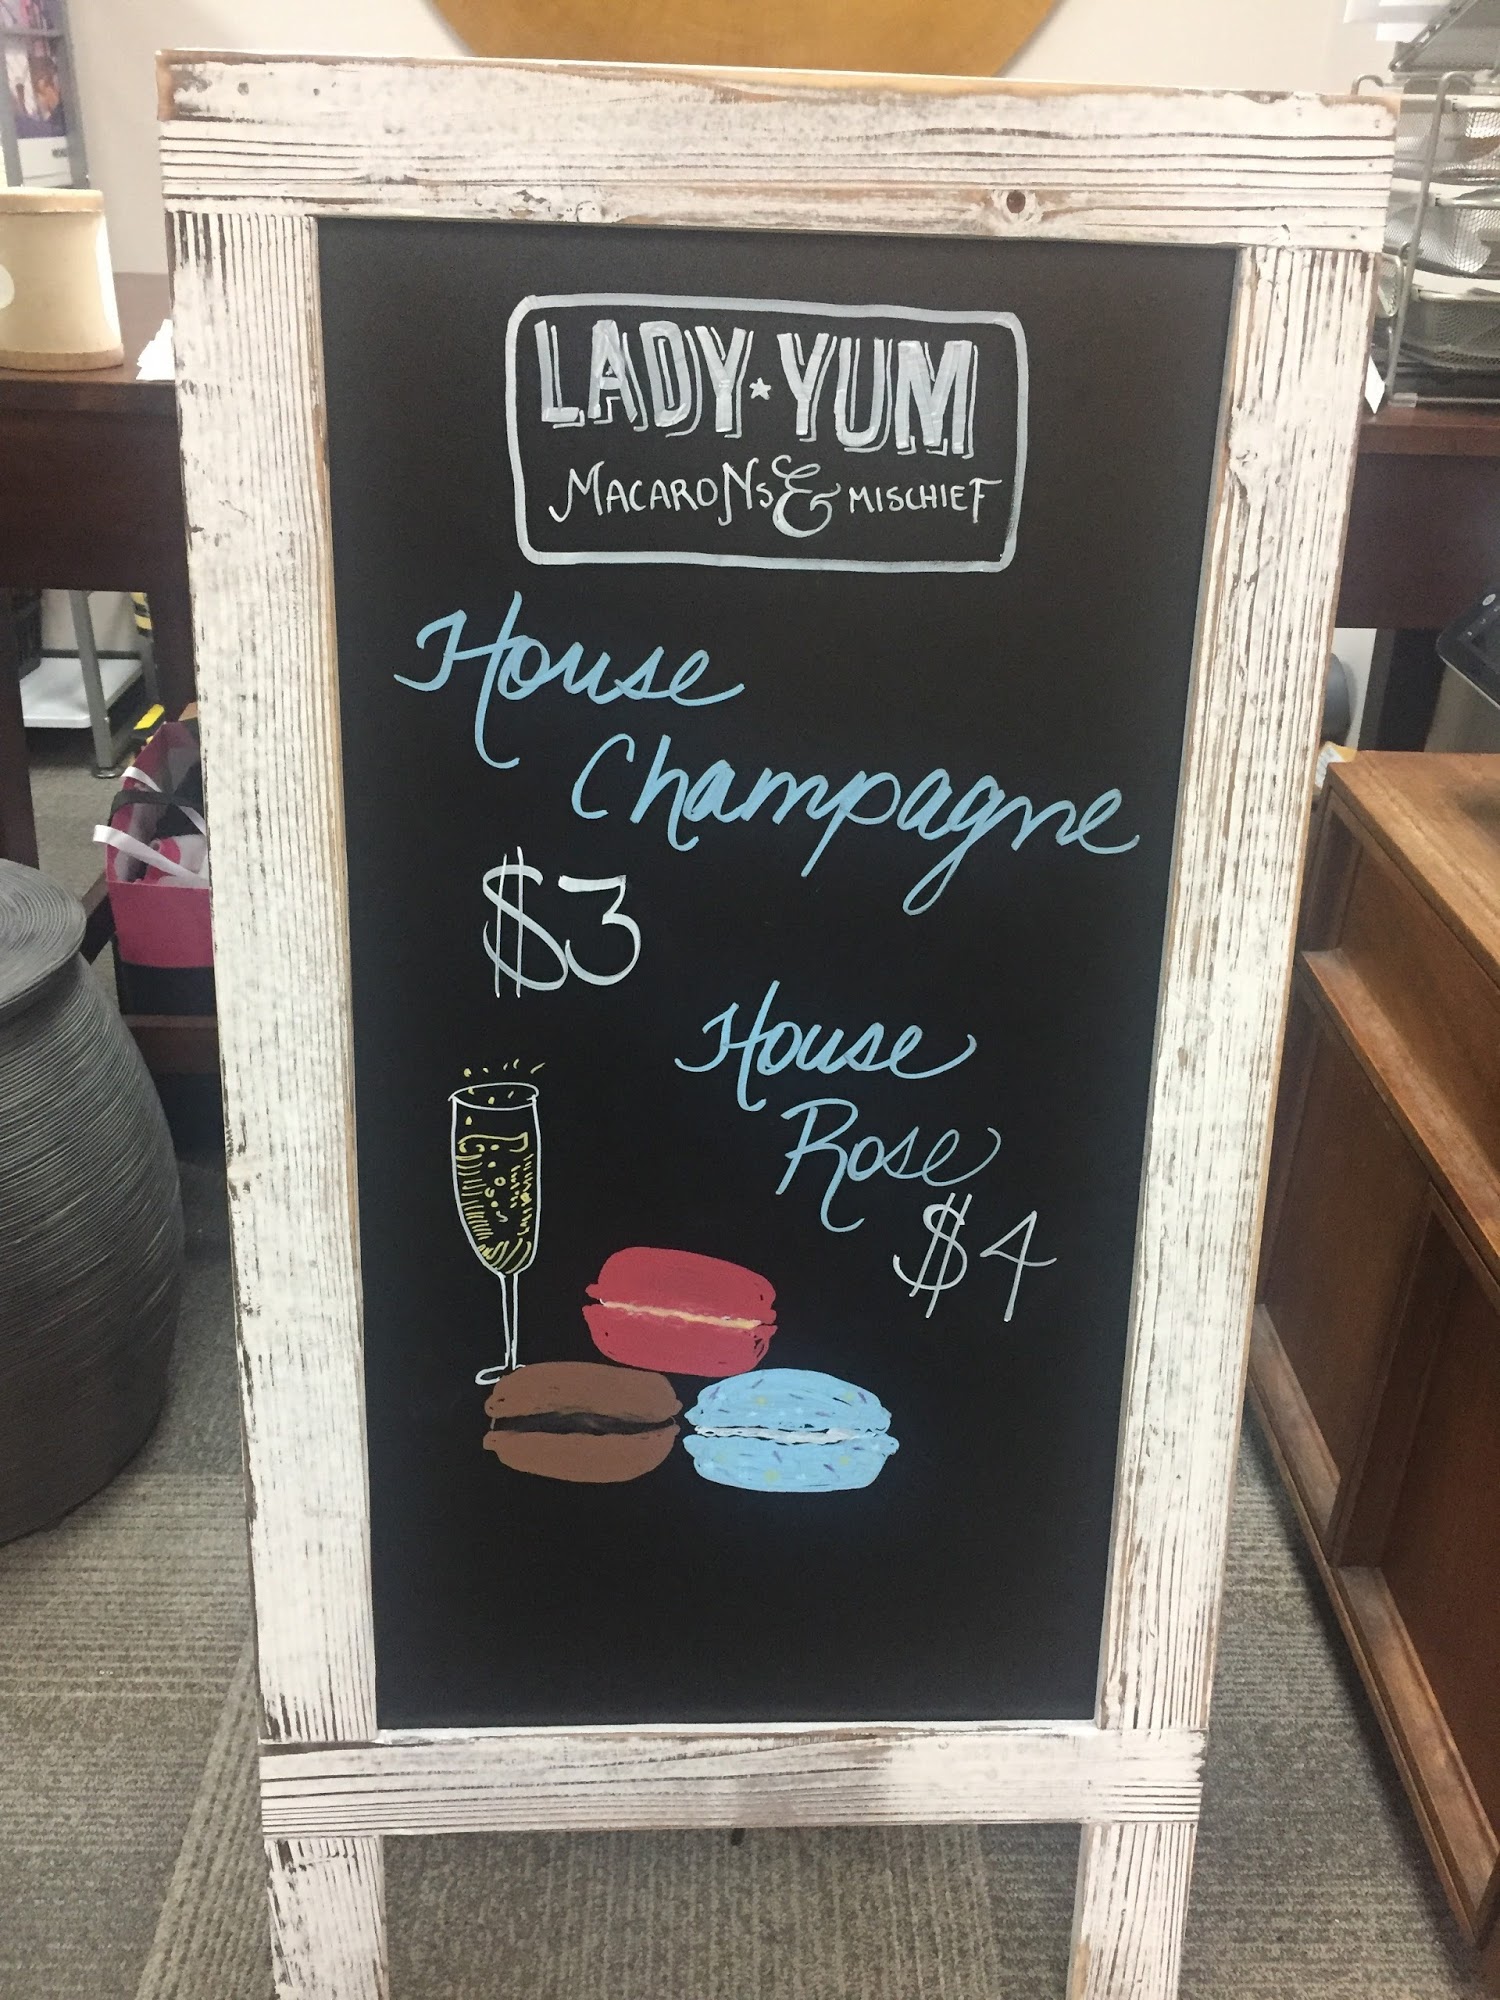 LADY★YUM
MACARONS & MISCHIEF
House
Champagne
$3
House
Rose
$4